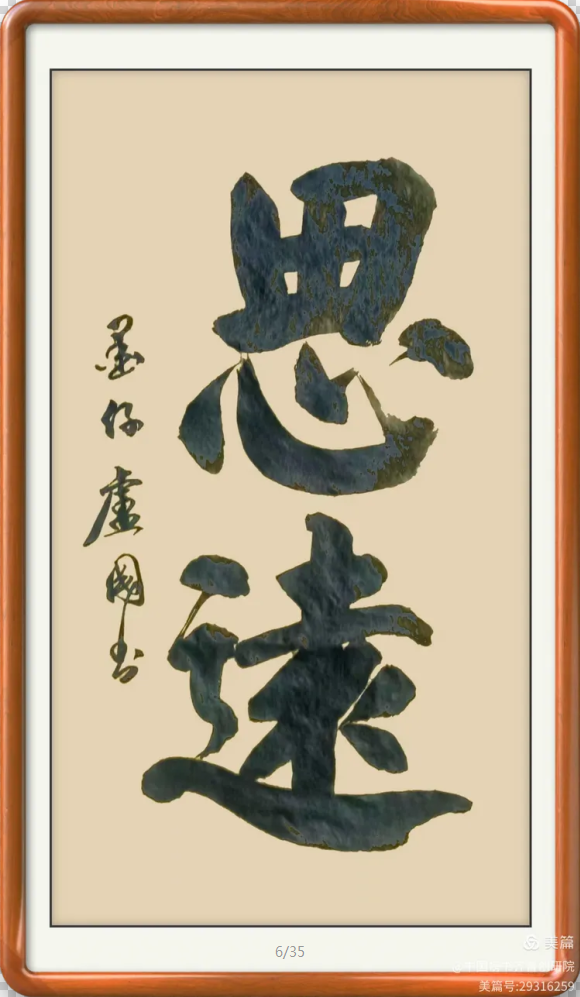 思遠
墨仔盧國书
6/35
美篇
美篇号:29316259